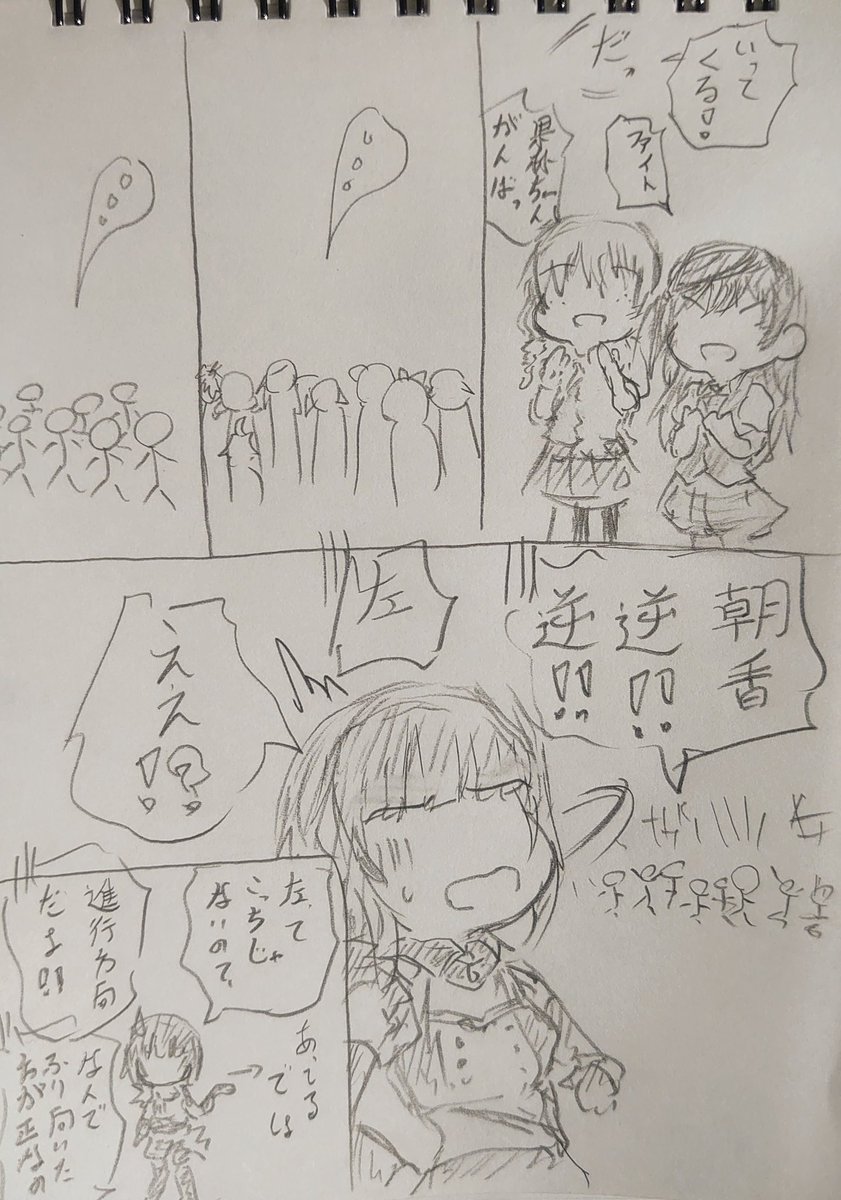 いって
くる!!
だっ
ファイト
果林ちゃん
がんばっ
朝香
逆!!
逆!!
左
ええ!?
左って
こっちじゃ
ないので
進行方向
だよ!!
あってる
では
なんで
ふり向いた
ちが正なの